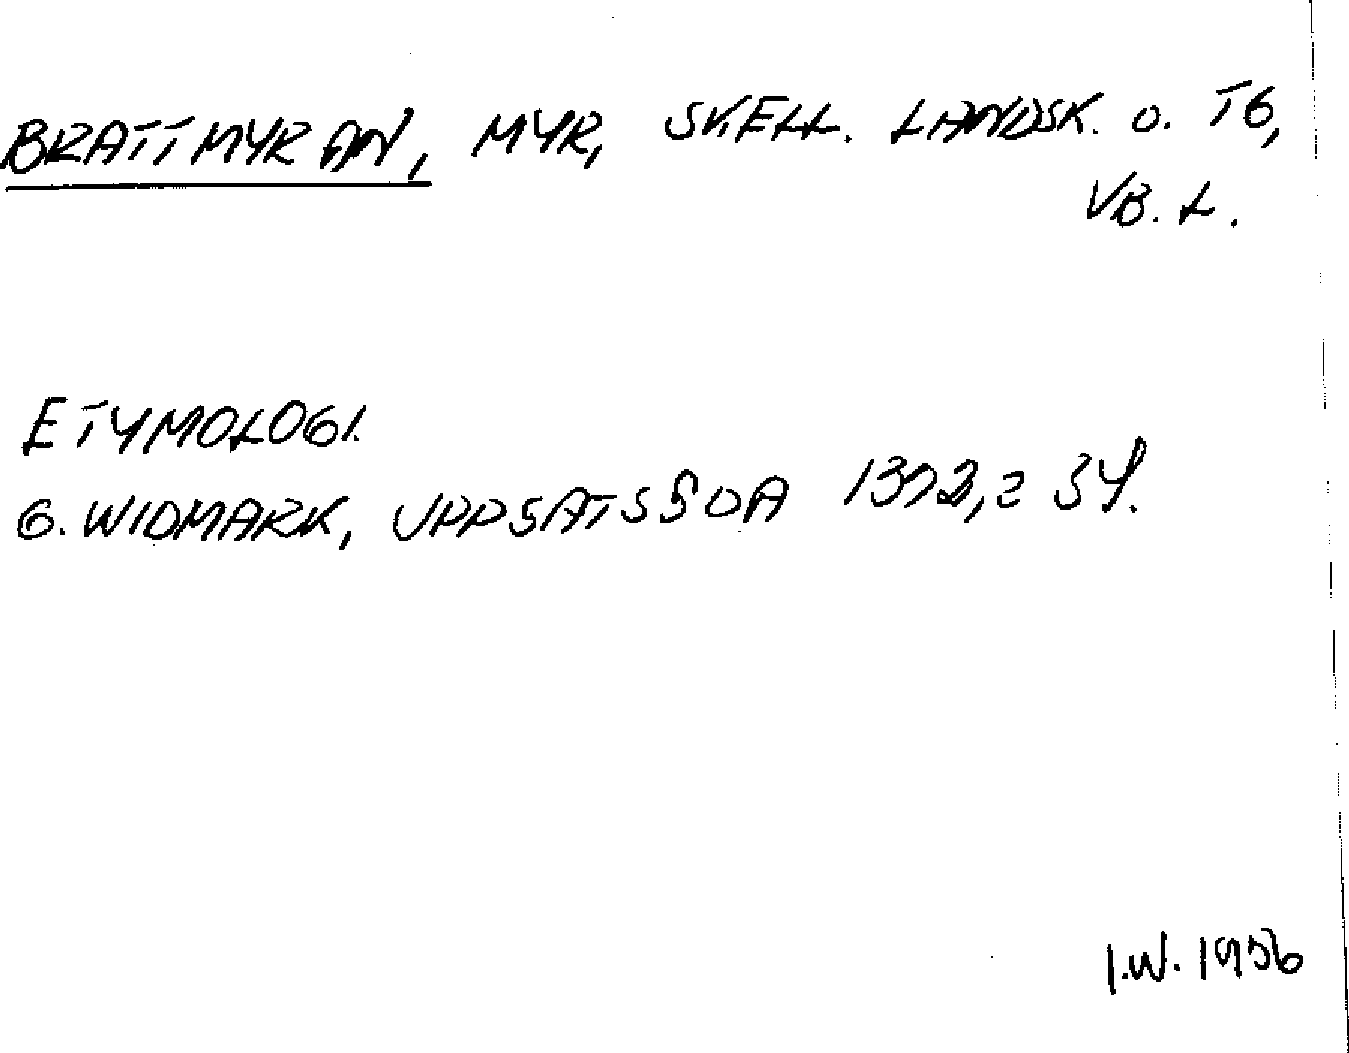 BRATTMYRAN, MYR, SKELL. LANDSK. O. TG,
VB. L.
ETYMOLOGI.
G. WIDMARK, UPPSATS SOA 1372, S 34.
I.W. 1956